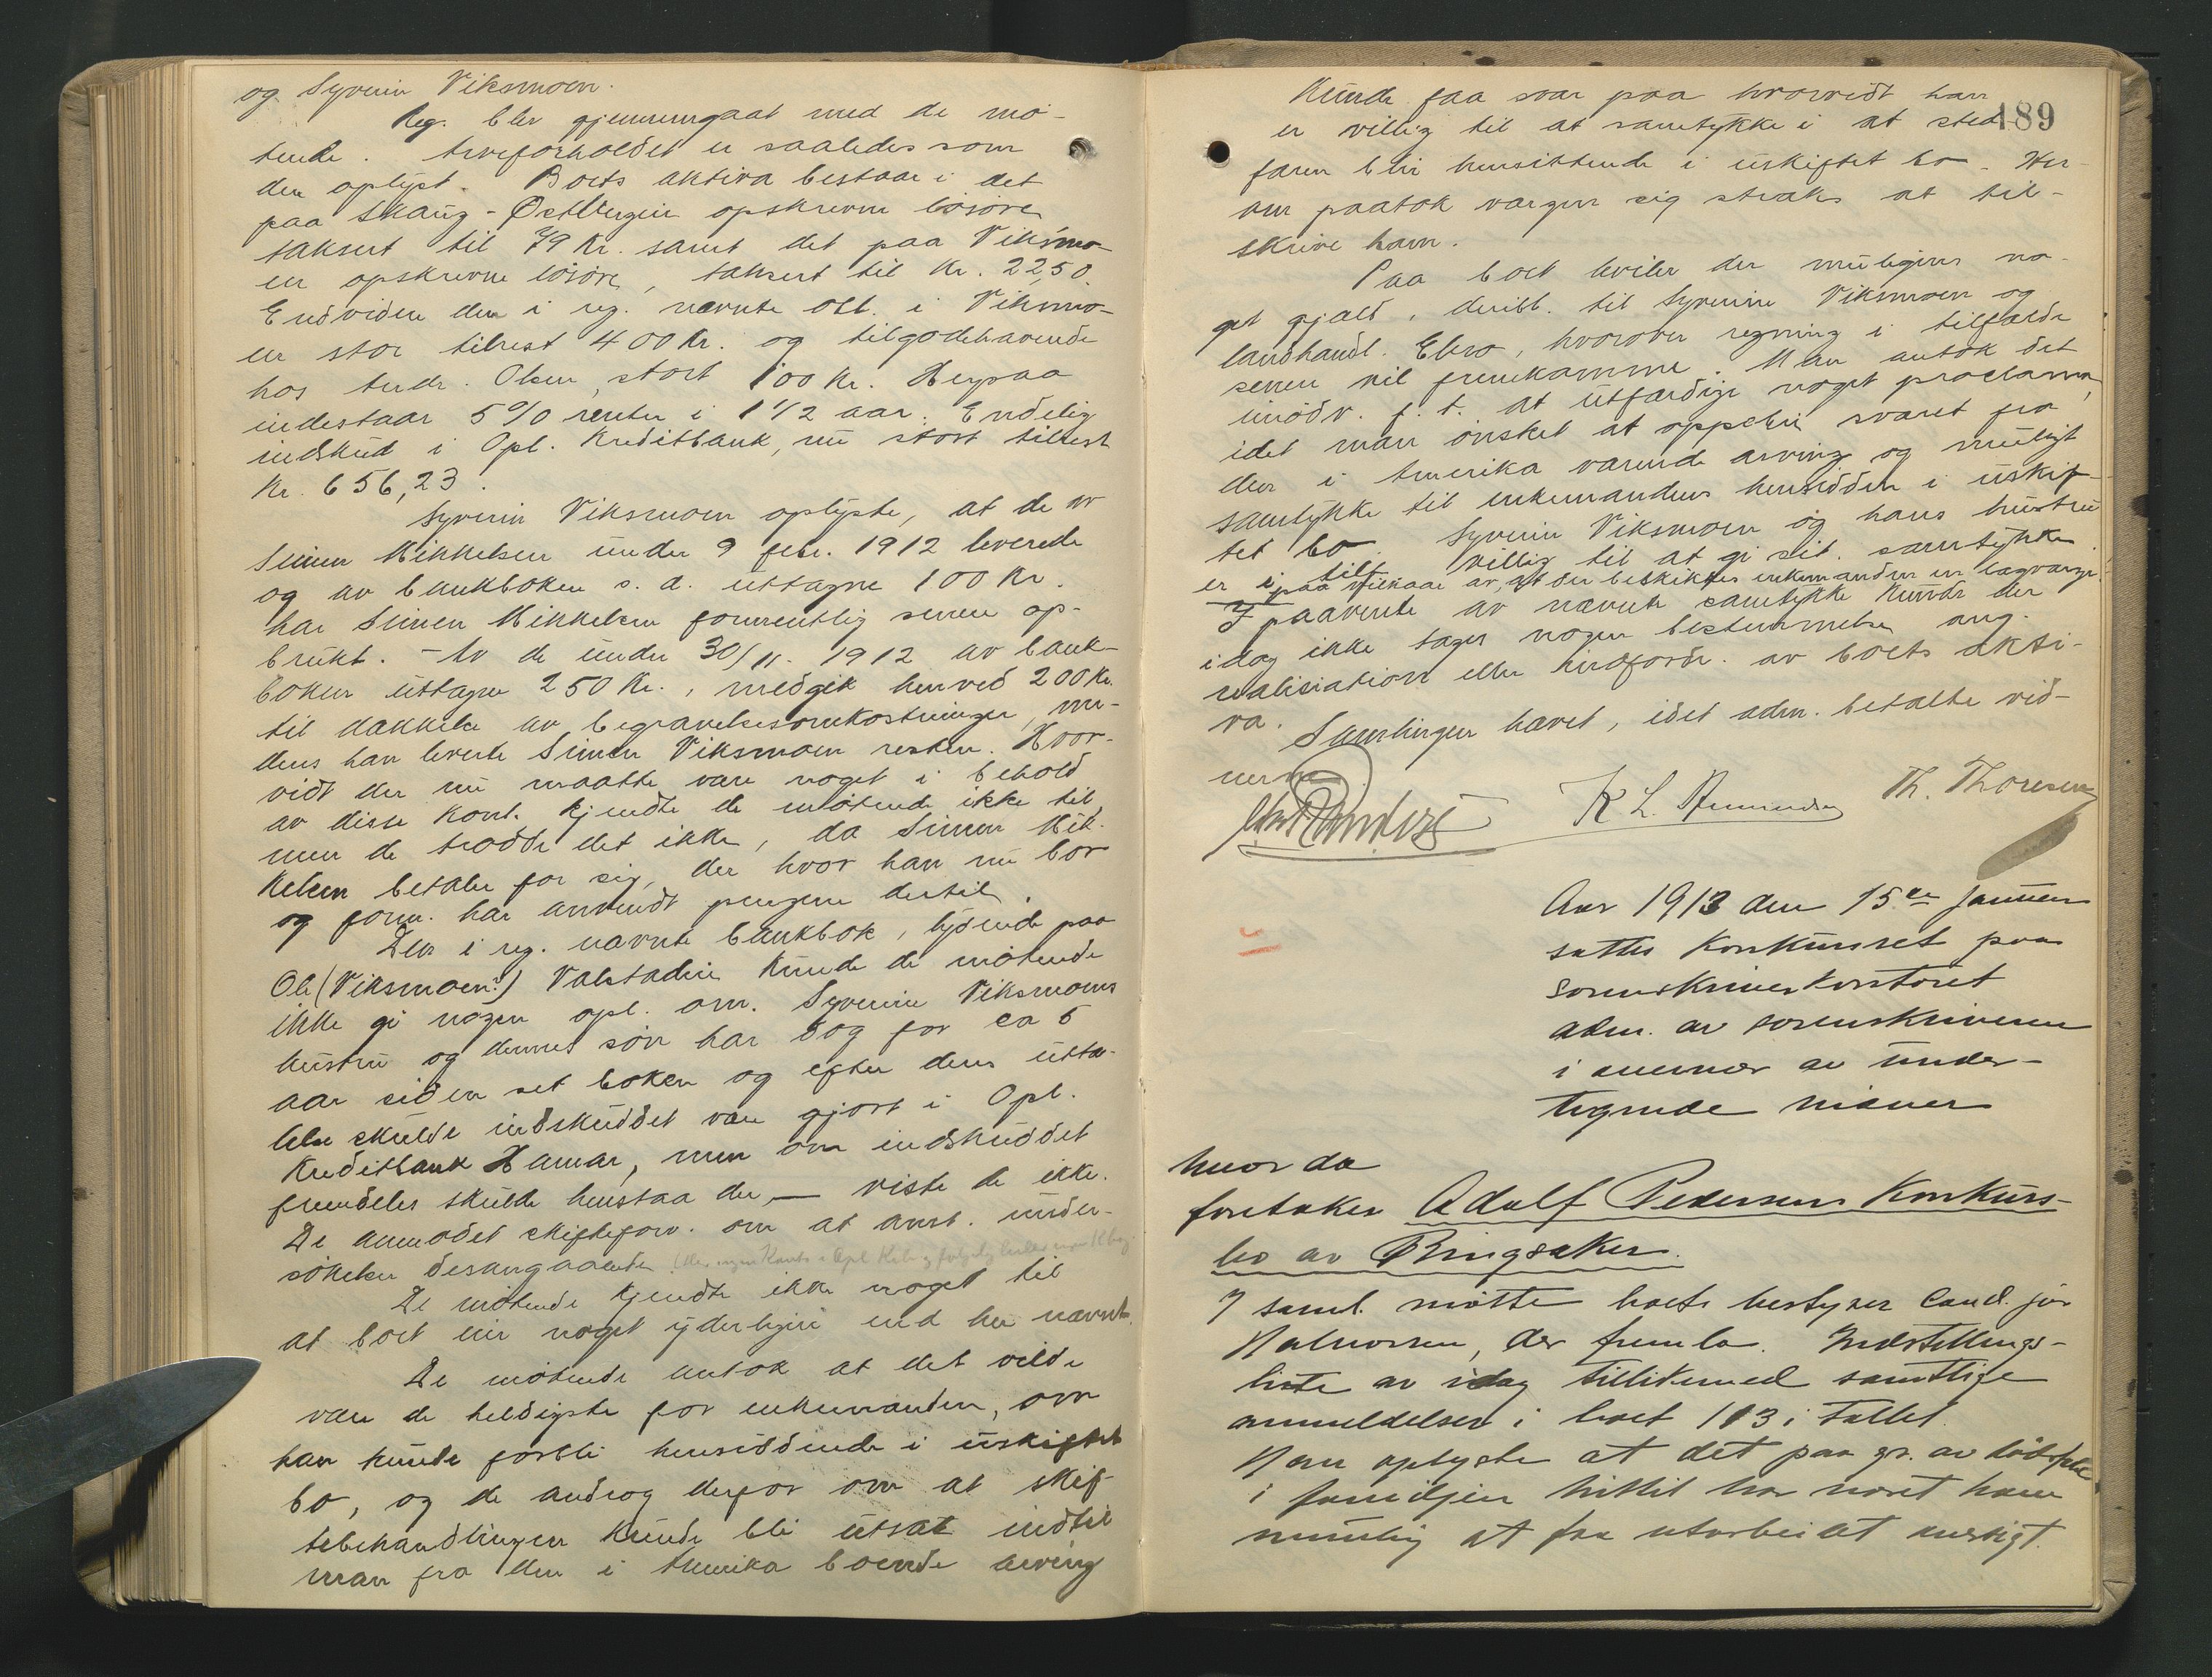 og Syverin Viksmoen.
Reg. blev gjennemgaat med de mø-
tende. Arveforholdet er saaledes som
der oplyst. Boets aktiva bestaar i det
paa Skaug-Østbergeie opskrevne løsøre
taksert til 79 Kr. samt det paa Viksmo-
en opskrevne løsøre, taksert til Kr. 22,50.
Endvidere den i reg. nævnte obl. i Viksmo-
en stor tilrest 400 Kr. og tilgodehavende
hos Andr. Olsen, stort 100 Kr. Herpaa
indestaar 5% renter i 1 1/2 aar. Endelig
indskud i Opl. Kreditbank, nu stort tilrest
Kr. 656,23.
Syverin Viksmoen oplyste, at de av
Simen Mikkelsen under 9 febr. 1912 leverede
og av bankboken s. d. uttagne 100 Kr.
har Simen Mikkelsen formentlig senere op-
brukt. - Av de under 30/11. 1912 av bank-
boken uttagne 250 Kr., medgik henved 200 Kr.
til dækkelse av begravelsesomkostninger, me-
dens han leverte Simen Viksmoen resten. Hvor-
vidt der nu maatte være noget i behold
av disse kont. kjendte de møtende ikke til,
men de trodde det ikke, da Simen Mik-
kelsen betaler for sig, der hvor han nu bor
og form. har anvendt pengene dertil.
Den i reg. nævnte bankbok, lydende paa
Ole (Viksmoen?) Valstadeie kunde de møtende
ikke gi nogen opl. om. Syverin Viksmoens
hustru og dennes søn har dog for ca 5
aar siden set boken og efter dens utta-
lelse skulde indskuddet være gjort i Opl.
Kreditbank Hamar, men om indskuddet
fremdeles skulde henstaa der, — viste de ikke.
De anmodet skifteforv. om at anst. under-
søkelser desangaaende.
De møtende kjendte ikke noget til
at boet eier noget yderligere end her nævnt.
De møtende antok at det vilde
være de heldigste for enkemanden, om
han kunde forbli hensiddende i uskiftet
bo, og de androg derfor om at skif-
tebehandlingen kunde bli utsat indtil
man fra den i Amerika boende arving
189
Kunde faa svar paa hvorvidt han
er villig til at samtykke i at sted
faren blir hensittende i uskiftet bo. Her-
om paatok vergen sig straks at til-
skrive ham.
Paa boet hviler der muligens no-
get gjæld, deribl. til Syverin Viksmoen og
landhandl. Ebro, hvorover regning i tilfælde
senere vil fremkomme. Man antok det
unødv. f. t. at utfærdige noget proclama,
idet man ønsket at oppebie svaret fra
den i Amerika værende arving og muligt
samtykke til enkemandens hensidden i uskif-
tet bo. Syverin Viksmoen og hans hustru
er i tilf. villig til at gi sit samtykke
paa vilkaar av, at der beskikkes enkemanden en lagværge.
I paavente av nævnte samtykke kunde der
idag ikke tages nogen bestemmelse ang.
realisiation eller indfordr. av boets akti-
va.
Samlingen hævet, idet adm. betalte vid-
nerne
K L. Amundsen Th. Thoresen
Aar 1913 den 15de januar
sattes Konkursret paa
sorenskriverkontoret
adm. av sorenskriveren
i nærvær av under-
tegnede vidner
hvor da
foretokes Adolf Pedersens Konkurs-
bo av Ringsaker.
I saml. møtte boets bestyrer Cand. jur
Halvorsen, der fremla Indstillings-
liste av idag tillikemed samtlige
anmeldelser i boet 113 i tallet.
Han oplyste at det paa gr. av dødsfald
i familjen hittil har været ham
umulig at faa utarbeidet utsigt.